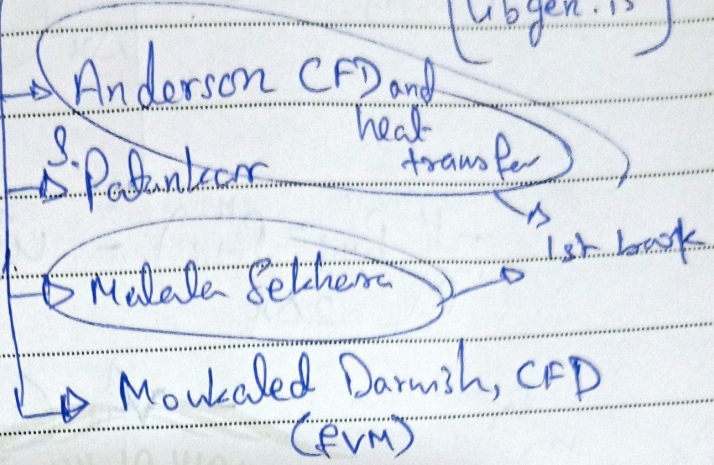 [libgen.is]
Anderson CFD and
heat
transfer
S. Patankar
1st book
Malala Sekhera
Moukaled Darwish, CFD
(FVM)